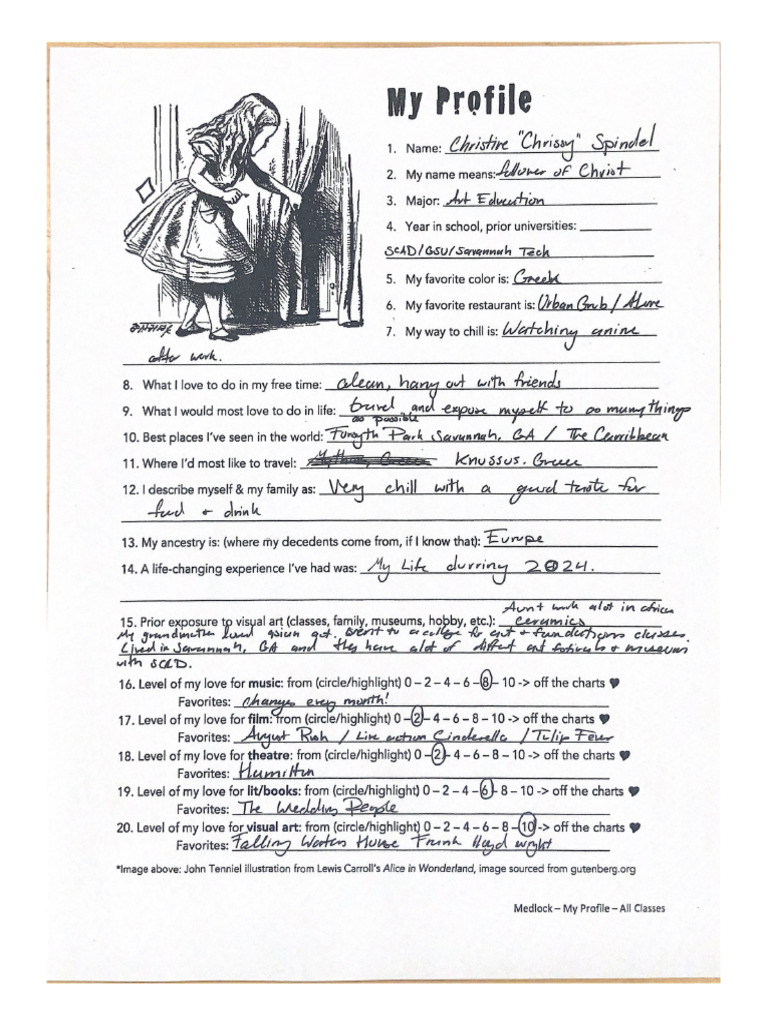 My Profile
1. Name: Christine "Chrissy" Spindel
2. My name means: follower of Christ
3. Major: Art Education
4. Year in school, prior universities:
SCAD/GSU/Savannah Tech
5. My favorite color is: Greek
6. My favorite restaurant is: Urban Grub /
7. My way to chill is: Watching anime
after work.
8. What I love to do in my free time: clean, hang out with friends
9. What I would most love to do in life: travel and expose myself to as many things
as possible
10. Best places I've seen in the world: Forsyth Park Savannah, GA / The Carribbean
11. Where I'd most like to travel: Knussus. Greece
12. I describe myself & my family as: Very chill with a good taste for
food + drink
13. My ancestry is: (where my decedents come from, if I know that): Europe
14. A life-changing experience I've had was: My Life durring 2024.
15. Prior exposure to visual art (classes, family, museums, hobby, etc.): Aunt work alot in african
ceramics
My grandmother loved asian art. Went to a college for art + fundations classes.
Lived in Savannah, GA and they have alot of diffent art festivals + museums
with SCAD.
16. Level of my love for music: from (circle/highlight) 0 – 2 – 4 – 6 – 8 – 10 -> off the charts ♥
Favorites: changes every month!
17. Level of my love for film: from (circle/highlight) 0 – 2 – 4 – 6 – 8 – 10 -> off the charts ♥
Favorites: August Rush / Live action Cinderella / Tulip Fever
18. Level of my love for theatre: from (circle/highlight) 0 – 2 – 4 – 6 – 8 – 10 -> off the charts ♥
Favorites: Hamilton
19. Level of my love for lit/books: from (circle/highlight) 0 – 2 – 4 – 6 – 8 – 10 -> off the charts ♥
Favorites: The Wedding People
20. Level of my love for visual art: from (circle/highlight) 0 – 2 – 4 – 6 – 8 – 10 -> off the charts ♥
Favorites: Falling Waters House Frank Lloyd wright
*Image above: John Tenniel illustration from Lewis Carroll's Alice in Wonderland, image sourced from gutenberg.org
Medlock – My Profile – All Classes